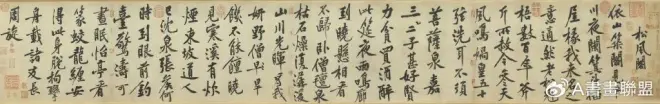 松風閣
依山築閣見平
川夜闌箕斗插
屋椽我來名之
意適然老松魁
梧數百年斧
斤所赦今參天
風鳴媧皇五十
弦洗耳不須
菩薩泉嘉二
三子甚好賢
力貧買酒醉
此筵夜雨鳴廊
到曉懸相看
不歸臥僧氈泉
枯石燥復潺湲
山川光暉為我
妍野僧旱
饑不能饘曉
見寒溪有炊
煙東坡道人
已沈泉張侯何
時到眼前釣
臺驚濤可
晝眠怡亭看
篆蛟龍纏安
得此身脫拘攣
舟載諸友長
周旋
@A書畫聯盟